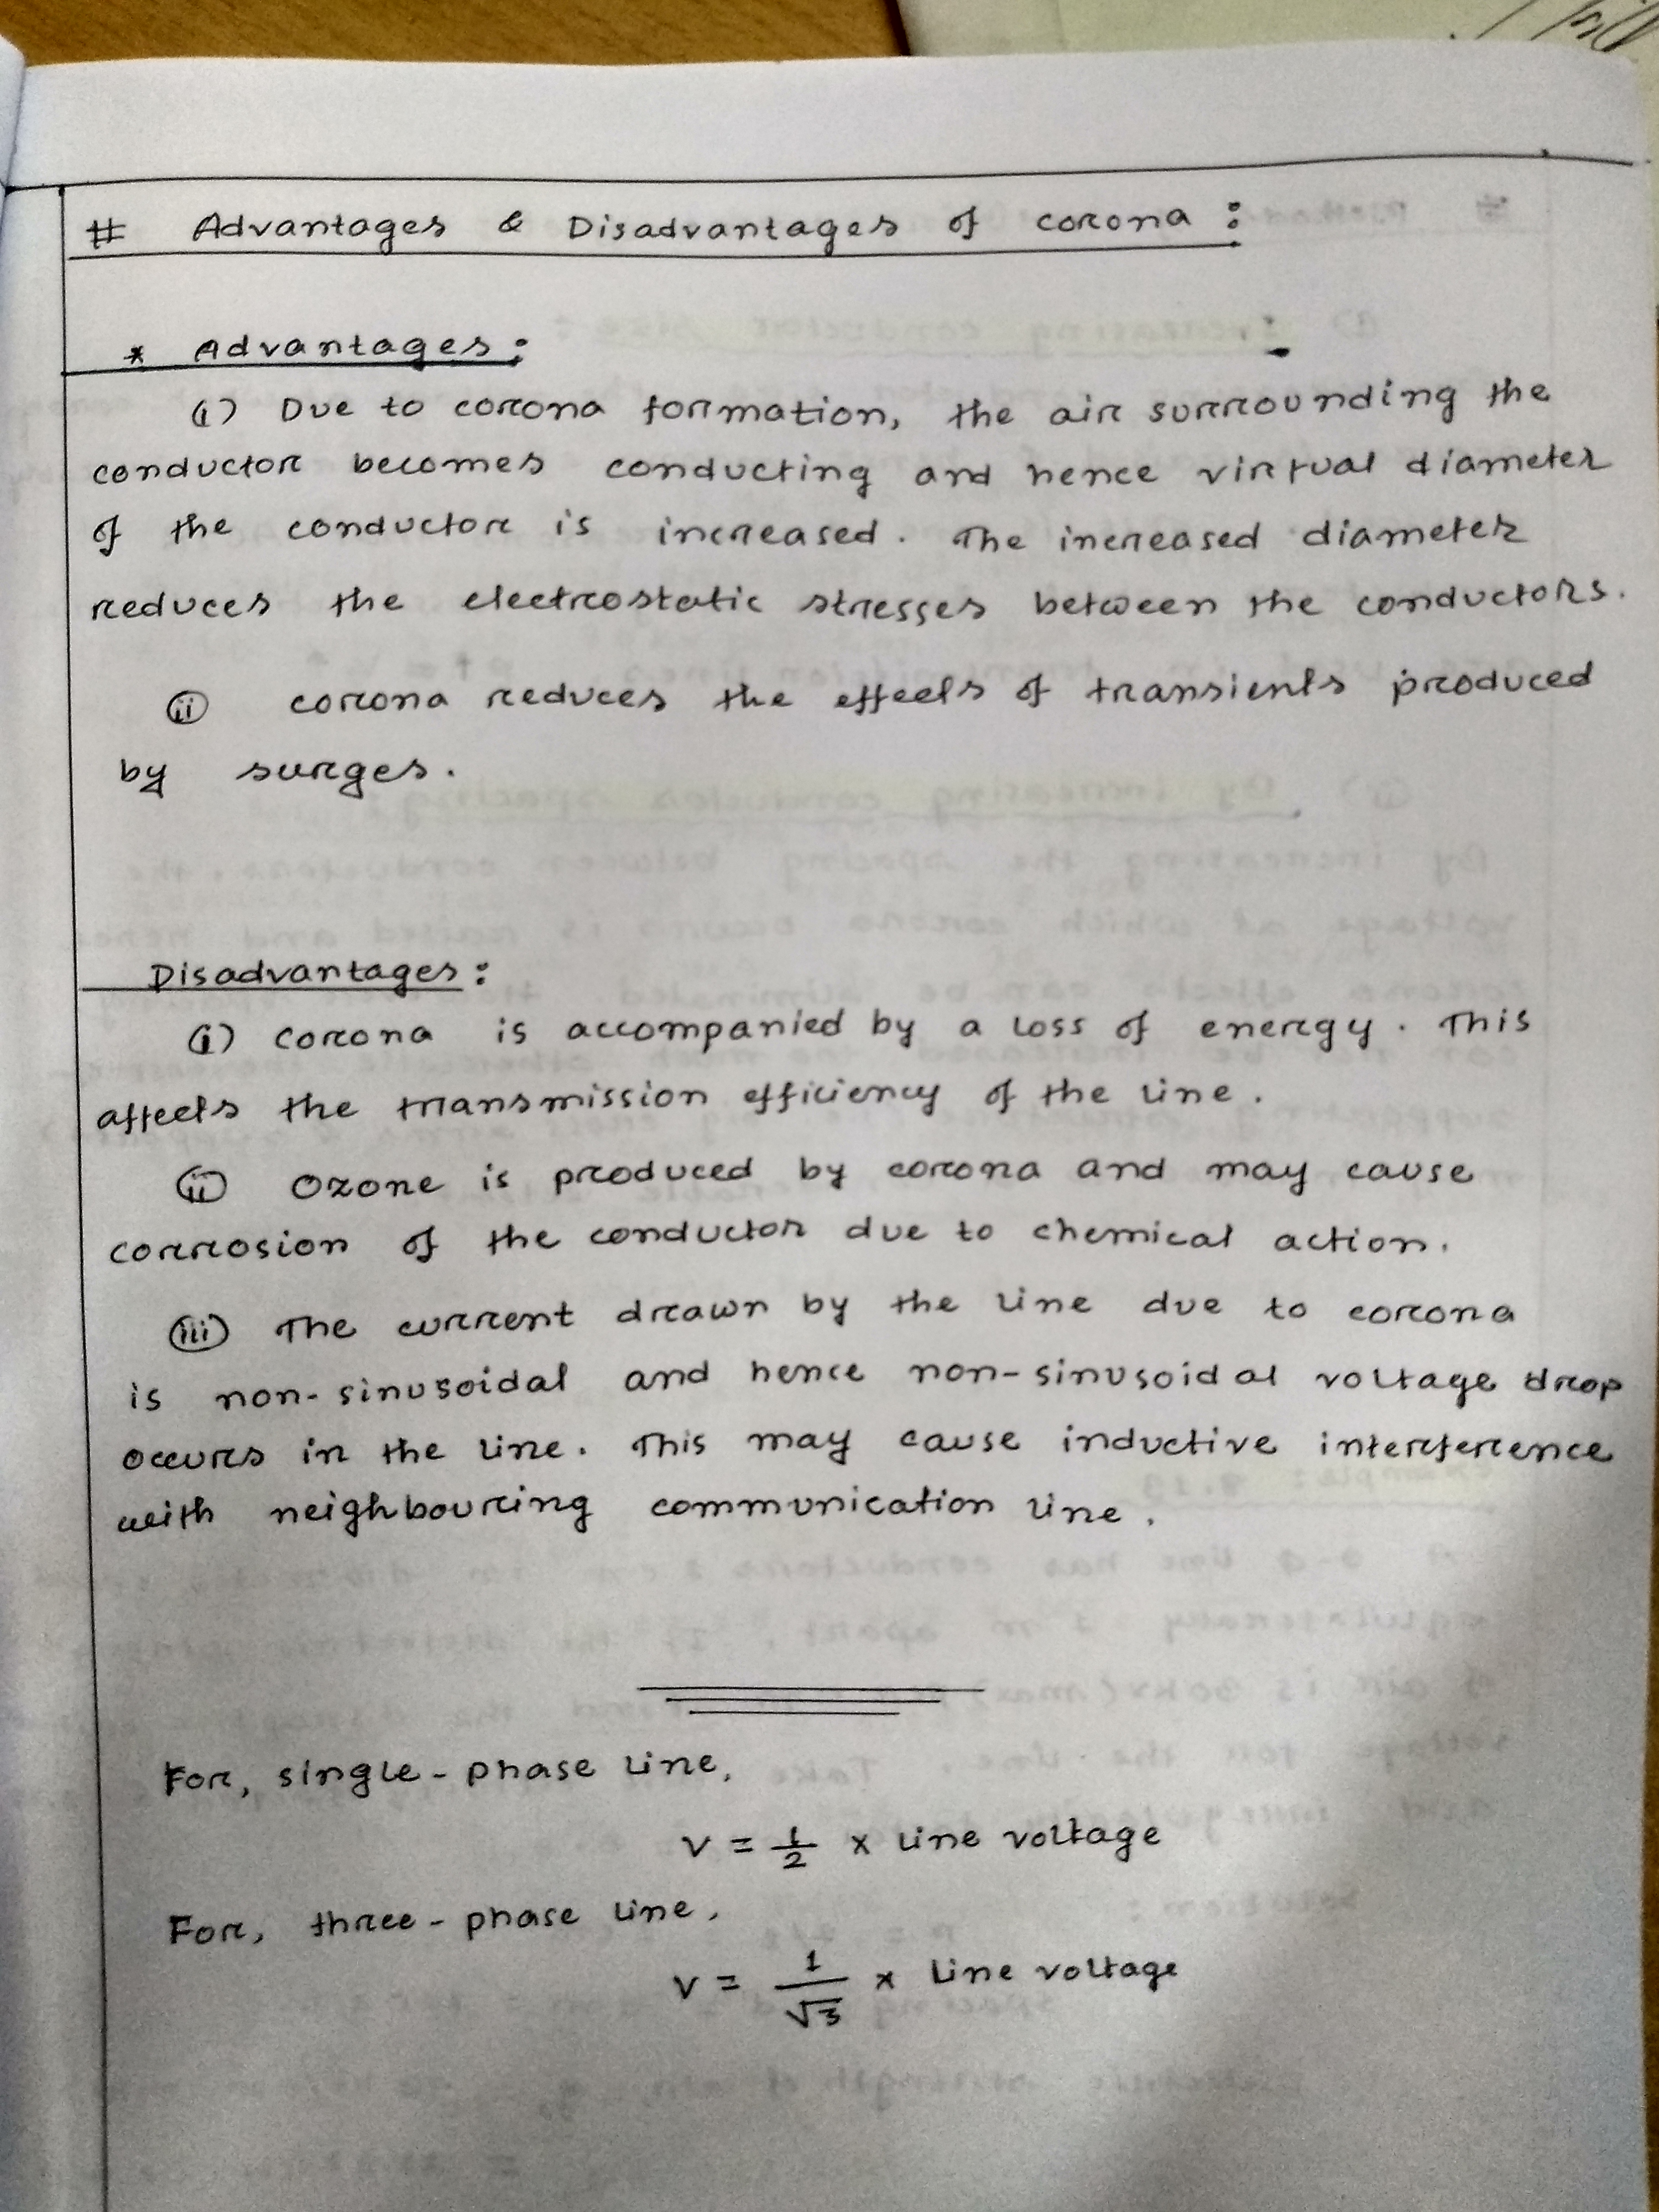 # Advantages & Disadvantages of corona :
* Advantages :
(i) Due to corona formation, the air surrounding the
conductor becomes conducting and hence virtual diameter
of the conductor is increased. The increased diameter
reduces the electrostatic stresses between the conductors.
(ii) corona reduces the effects of transients produced
by surges.
Disadvantages :
(i) corona is accompanied by a loss of energy. This
affects the transmission efficiency of the line.
(ii) Ozone is produced by corona and may cause
corrosion of the conductor due to chemical action.
(iii) The current drawn by the line due to corona
is non-sinusoidal and hence non-sinusoidal voltage drop
occurs in the line. This may cause inductive interference
with neighbouring communication line.
For, single-phase line,
V = 1/2 × line voltage
For, three-phase line,
V = 1/√3 × Line voltage